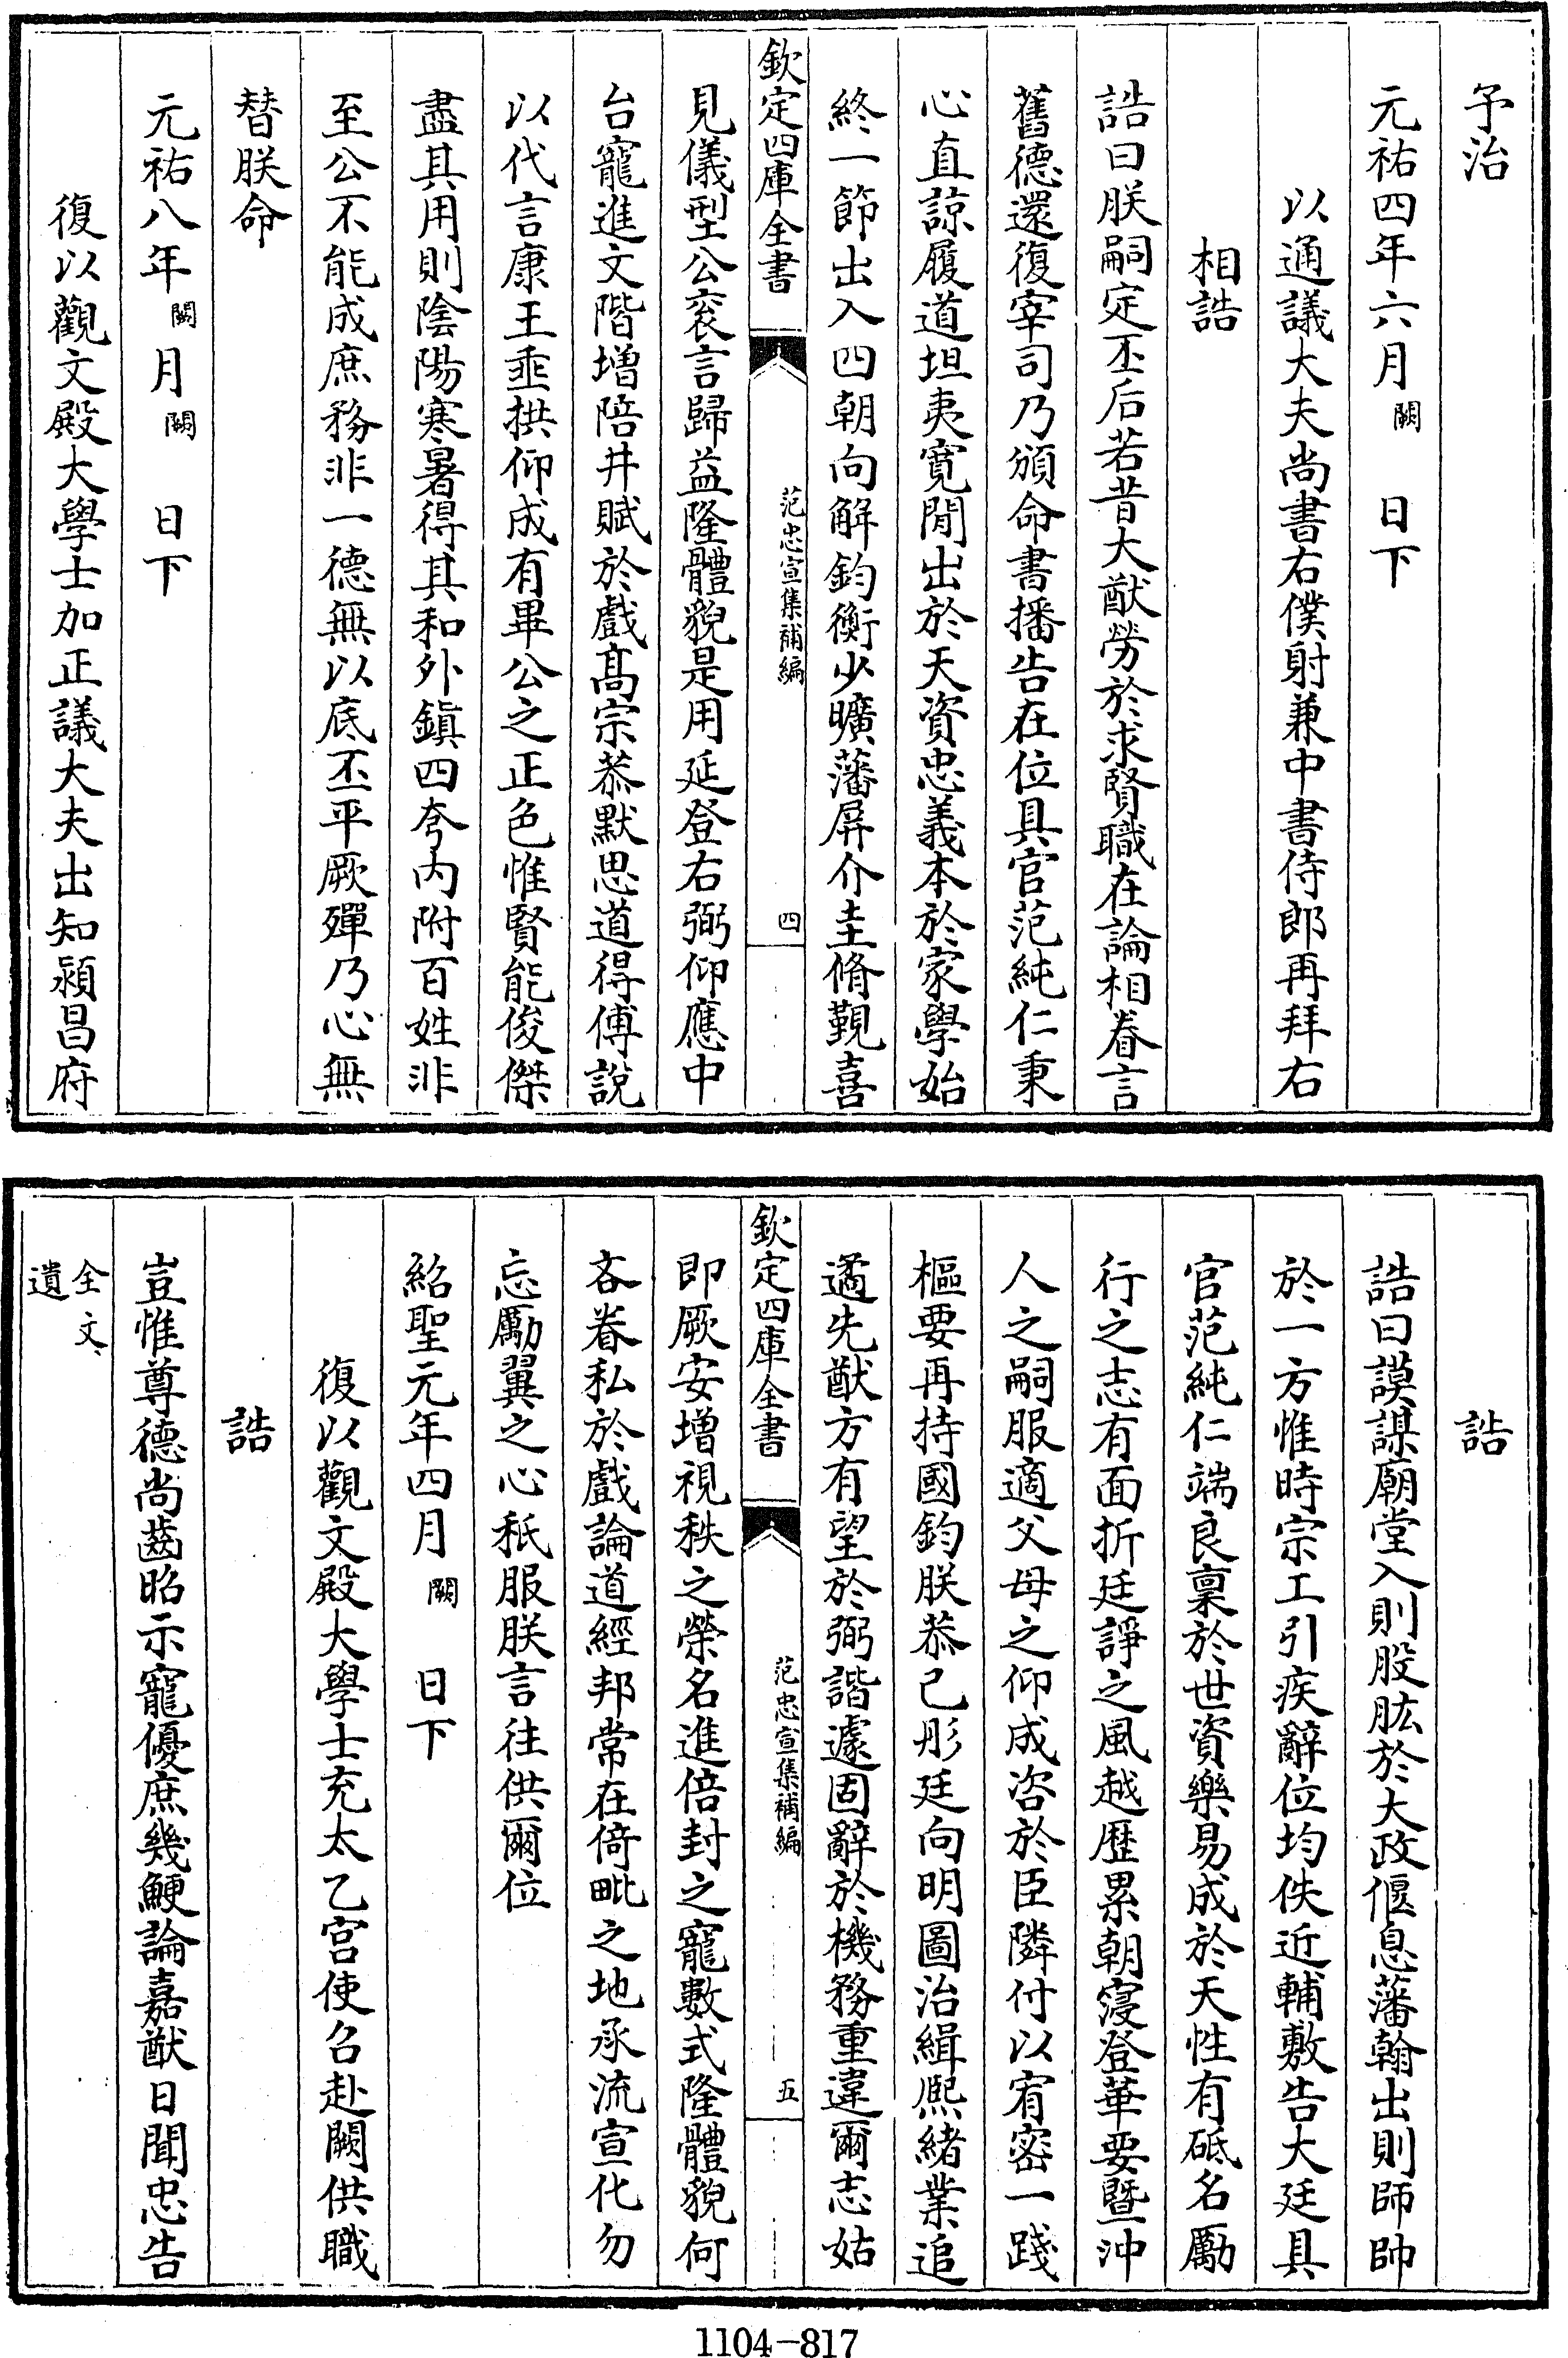 予治
元祐四年六月闕　日下
以通議大夫尚書右僕射兼中書侍郎再拜右
相誥
誥曰朕嗣定丕后若昔大猷勞於求賢職在論相眷言
舊德還復宰司乃頒命書播告在位具官范純仁秉
心直諒履道坦夷寛閒出於天資忠義本於家學始
終一節出入四朝向解鈞衡少曠藩屏介圭脩覲喜
欽定四庫全書
范忠宣集補編
四
見儀型公衮言歸益隆體貌是用延登右弼仰應中
台寵進文階增陪井賦於戲髙宗恭默思道得傅說
以代言康王垂拱仰成有畢公之正色惟賢能俊傑
盡其用則陰陽寒暑得其和外鎮四夸内附百姓非
至公不能成庶務非一德無以底丕平厥殫乃心無
替朕命
元祐八年闕月闕　日下
復以觀文殿大學士加正議大夫出知潁昌府
誥
誥曰謨謀廟堂入則股肱於大政偃息藩翰出則師帥
於一方惟時宗工引疾辭位均佚近輔敷告大廷具
官范純仁端良稟於世資樂易成於天性有砥名勵
行之志有面折廷諍之風越歴累朝寖登華要暨沖
人之嗣服適父母之仰成咨於臣隣付以宥密一踐
樞要再持國鈞朕恭己彤廷向明圖治緝熙緒業追
遹先猷方有望於弼諧遽固辭於機務重違爾志姑
欽定四庫全書
范忠宣集補編
五
即厥安增視秩之榮名進倍封之寵數式隆體貌何
吝眷私於戲論道經邦常在倚毗之地承流宣化勿
忘勵翼之心秖服朕言往供爾位
紹聖元年四月闕　日下
復以觀文殿大學士充太乙宫使召赴闕供職
誥
豈惟尊德尚齒昭示寵優庶幾鯁論嘉猷日聞忠告
全文
遺
1104-817